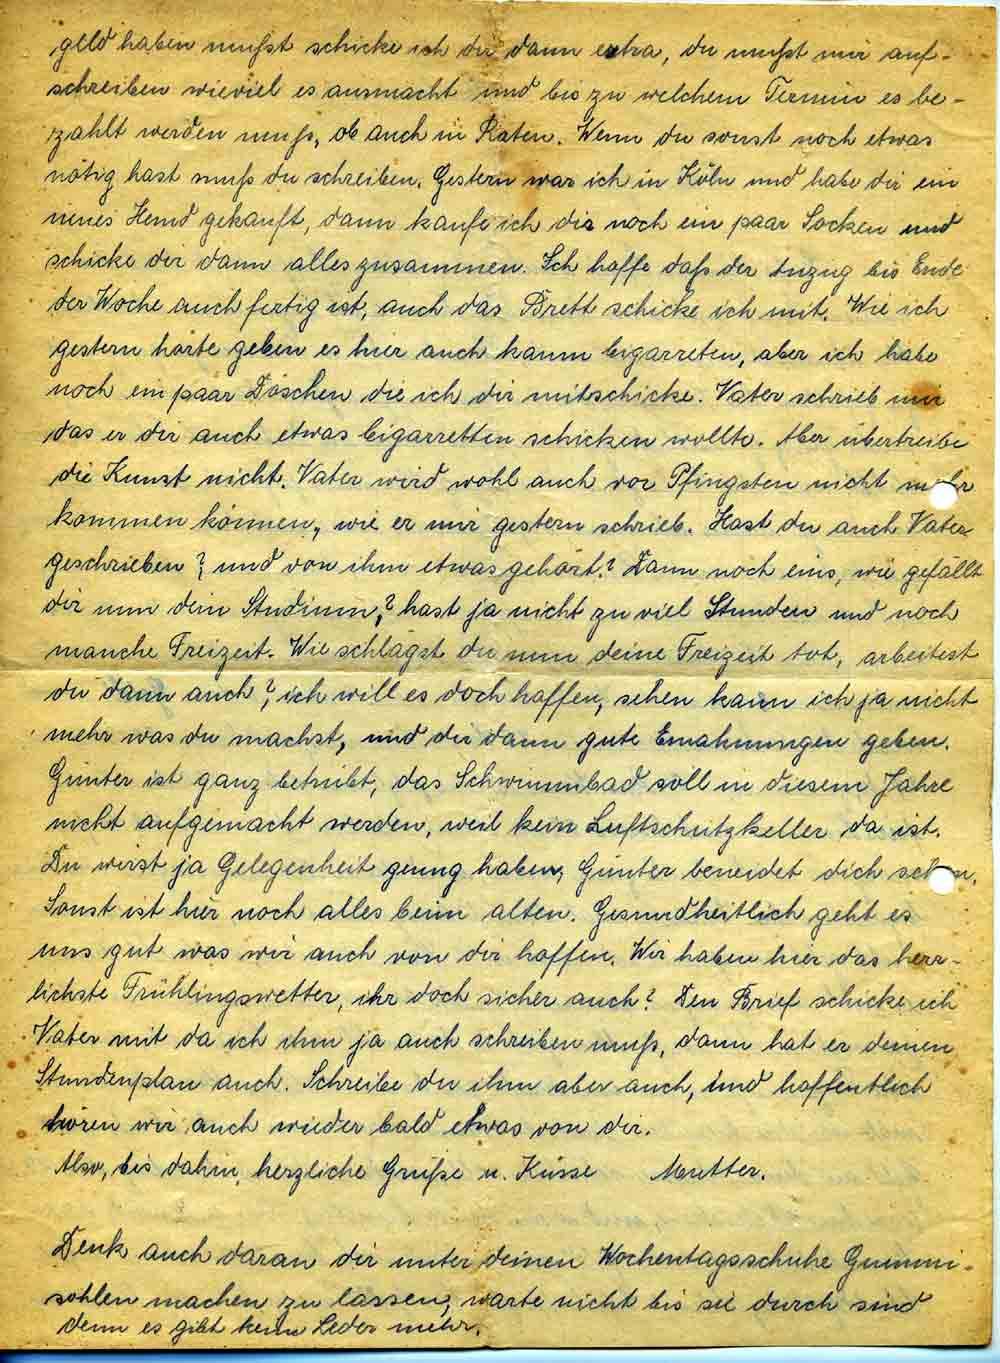 geld haben mußt schicke ich dir dann extra, du mußt mir auf-
schreiben wieviel es ausmacht und bis zu welchem Termin es be-
zahlt werden muß, ob auch in Raten. Wenn du sonst noch etwas
nötig hast muß du schreiben. Gestern war ich in Köln und habe dir ein
neues Hemd gekauft, dann kaufe ich dir noch ein paar Socken und
schicke dir dann alles zusammen. Ich hoffe daß der Anzug bis Ende
der Woche auch fertig ist, auch das Brett schicke ich mit. Wie ich
gestern hörte geben es hier auch kaum Cigarreten, aber ich habe
noch ein paar Döschen die ich dir mitschicke. Vater schrieb mir
das er dir auch etwas Cigarretten schicken wollte. Aber übertreibe
die Kunst nicht. Vater wird wohl auch vor Pfingsten nicht mehr
kommen können, wie er mir gestern schrieb. Hast du auch Vater
geschrieben? und von ihm etwas gehört? Dann noch eins, wie gefällt
dir nun dein Studium? hast ja nicht zu viel Stunden und noch
manche Freizeit. Wie schlägst du nun deine Freizeit tot, arbeitest
du dann auch? ich will es doch hoffen, sehen kann ich ja nicht
mehr was du machst, und dir dann gute Ermahnungen geben.
Günter ist ganz betrübt, das Schwimmbad soll in diesem Jahre
nicht aufgemacht werden, weil kein Luftschutzkeller da ist.
Du wirst ja Gelegenheit genug haben, Günter beneidet dich schon.
Sonst ist hier noch alles beim alten. Gesundheitlich geht es
uns gut was wir auch von dir hoffen. Wir haben hier das herr-
lichste Frühlingswetter, ihr doch sicher auch? Den Brief schicke ich
Vater mit da ich ihm ja auch schreiben muß, dann hat er deinen
Stundenplan auch. Schreibe du ihm aber auch, und hoffentlich
hören wir auch wieder bald etwas von dir.
Also, bis dahin, herzliche Grüße u. Küsse Muetter.
Denk auch daran dir unter deinen Wochentagsschuhe Gummi-
sohlen machen zu lassen, warte nicht bis sie durch sind
denn es gibt kein Leder mehr.